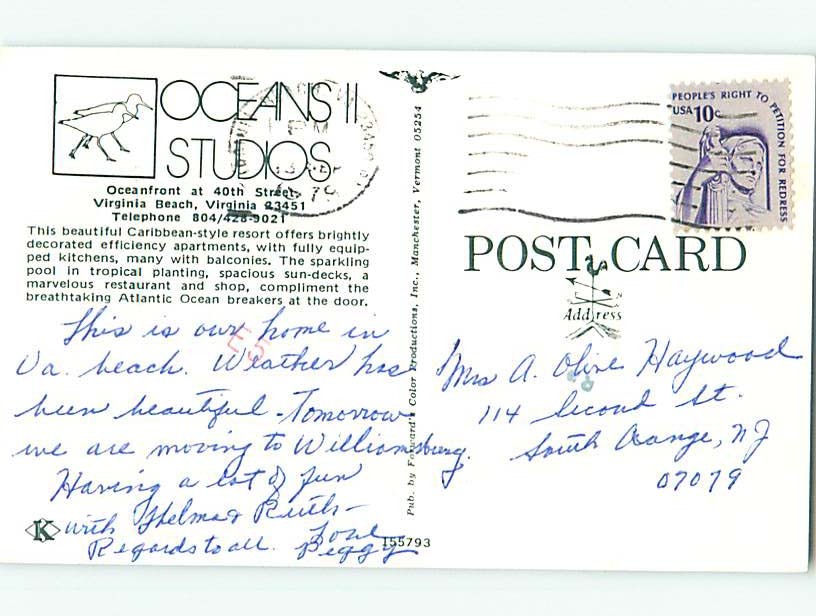 OCEANS II
STUDIOS
Oceanfront at 40th Street
Virginia Beach, Virginia 23451
Telephone 804/428-9021
This beautiful Caribbean-style resort offers brightly
decorated efficiency apartments, with fully equip-
ped kitchens, many with balconies. The sparkling
pool in tropical planting, spacious sun-decks, a
marvelous restaurant and shop, compliment the
breathtaking Atlantic Ocean breakers at the door.
This is our home in
Va. beach. Weather has
been beautiful - Tomorrow
we are moving to Williamsburg.
Having a lot of fun
with Thelma & Ruth -
Regards to all. Love
Peggy
K
155793
Pub. by Forward's Color Productions, Inc., Manchester, Vermont 05254
PM
PEOPLE'S RIGHT TO PETITION FOR REDRESS
USA 10c
POST CARD
Address
Mrs A. Olive Haywood
114 Second St.
South Orange, NJ
07079